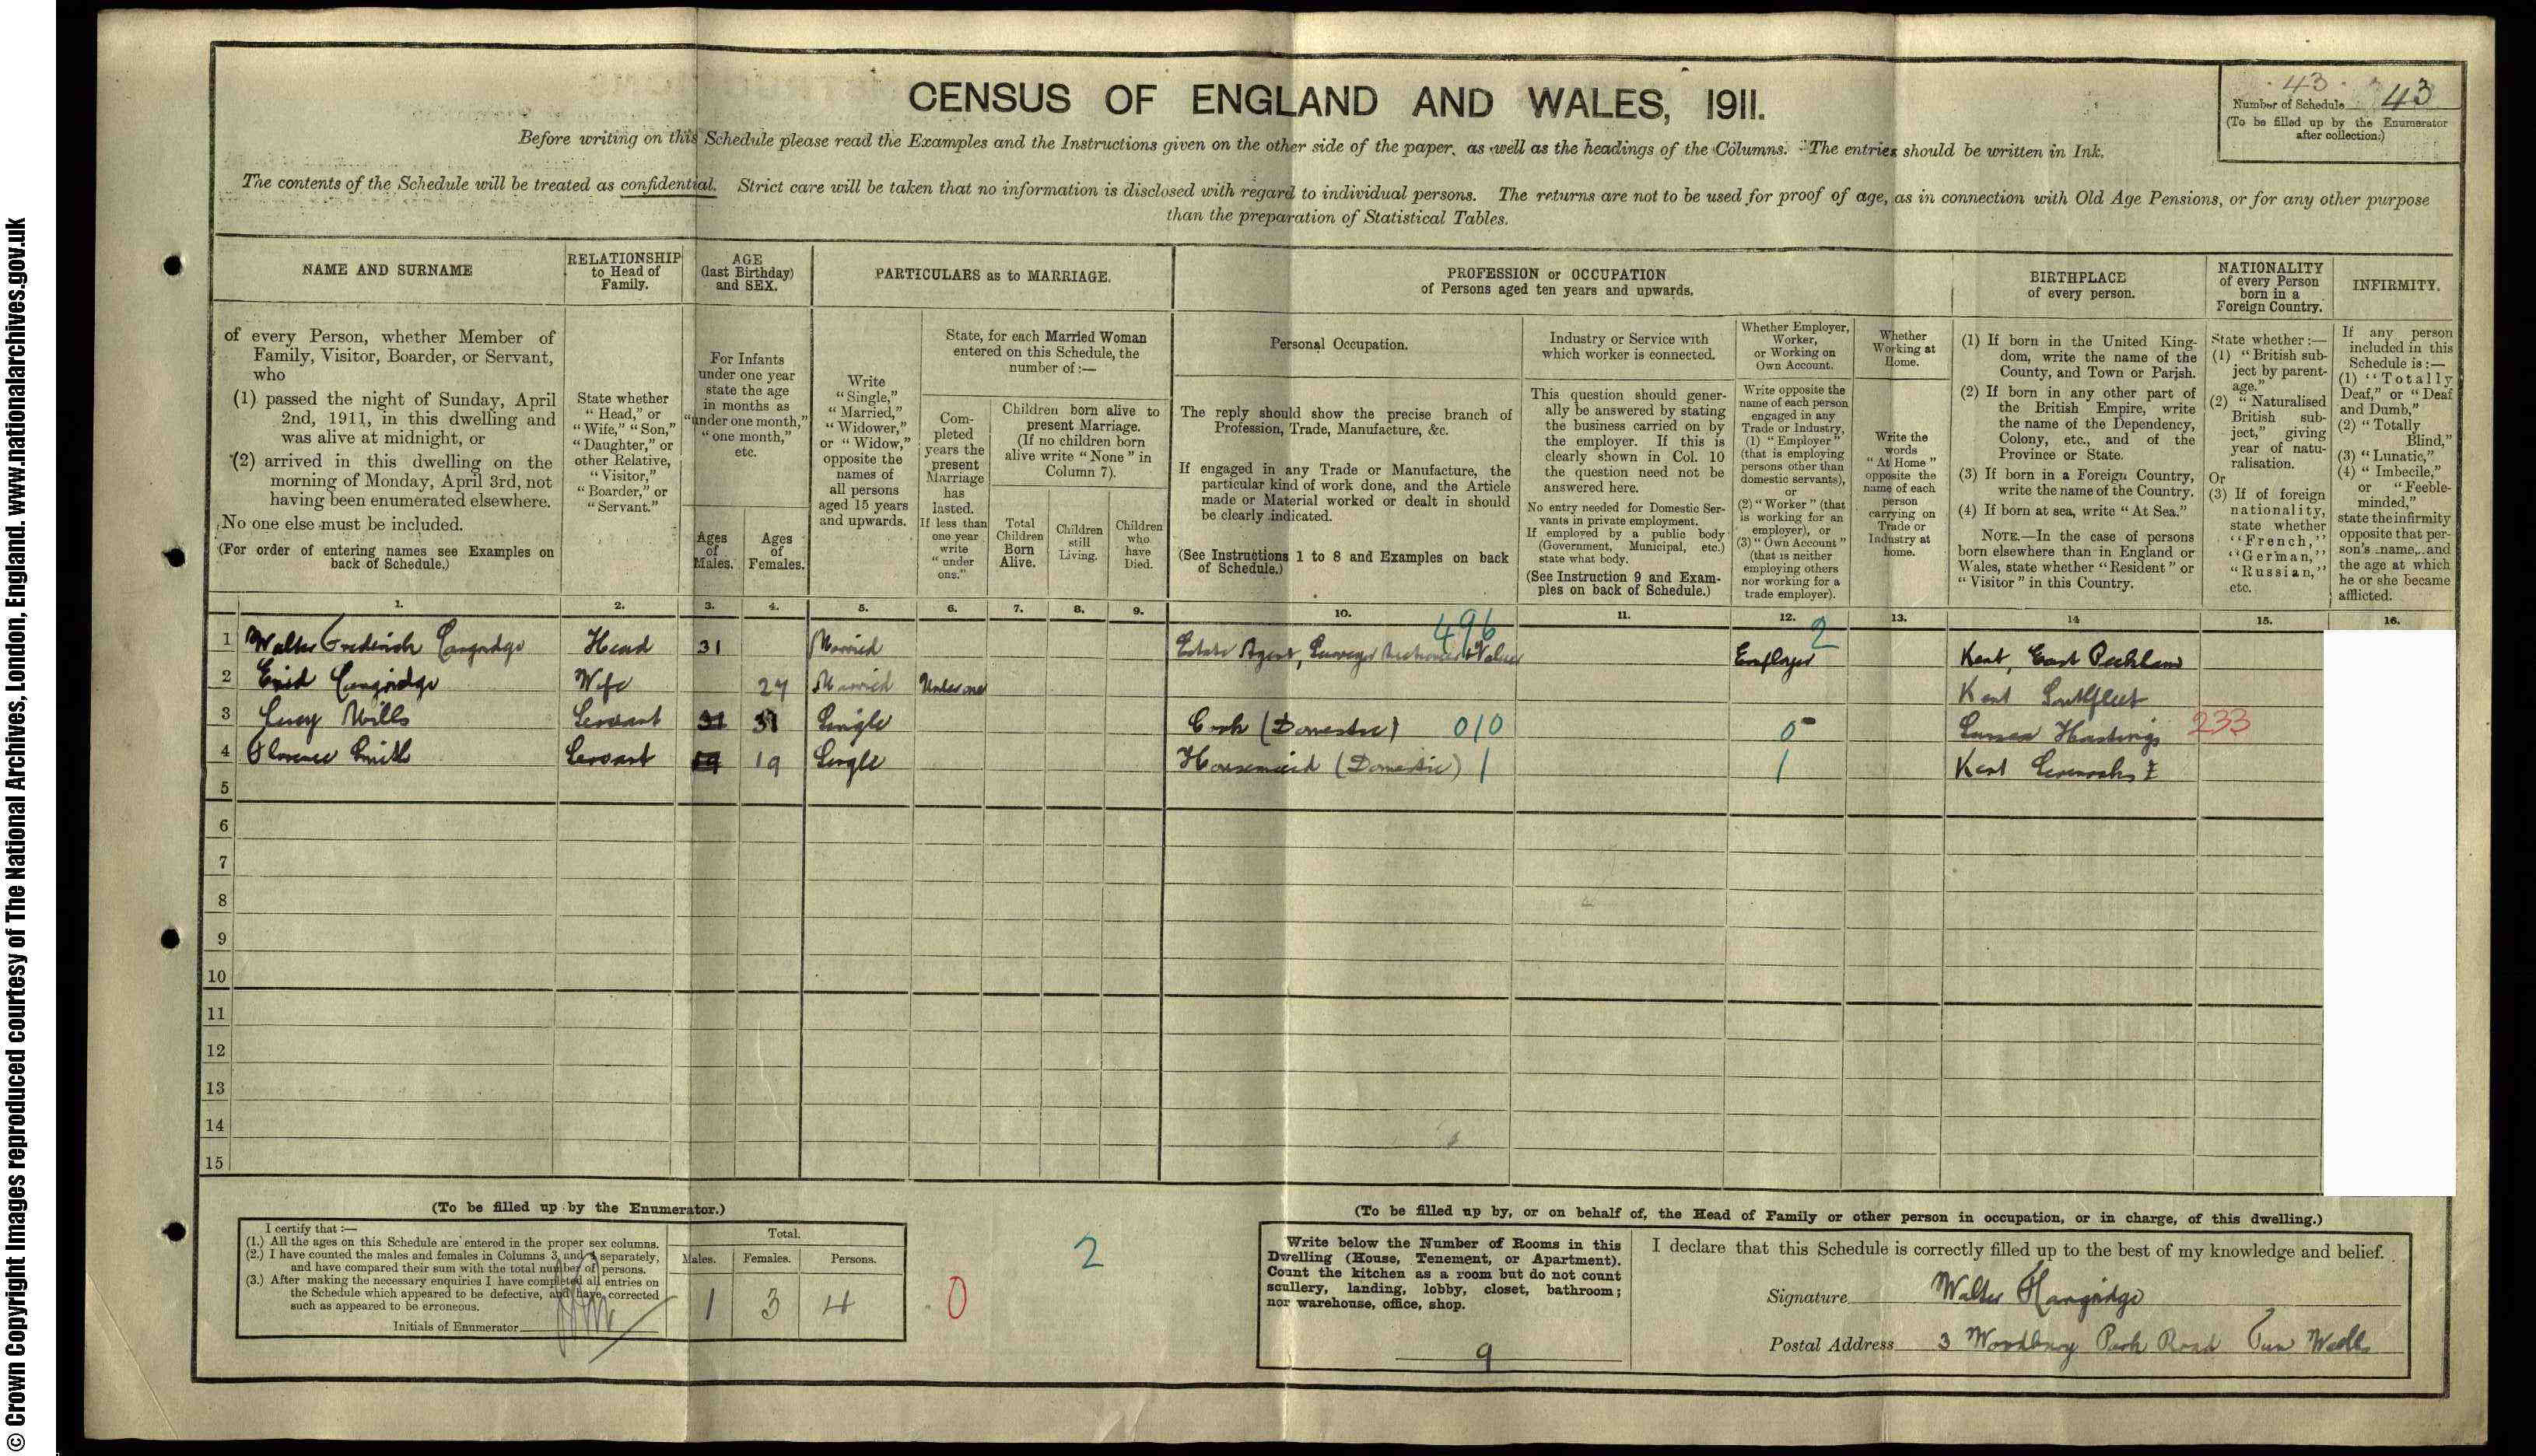 © Crown Copyright Images reproduced courtesy of The National Archives, London, England. www.nationalarchives.gov.uk
CENSUS OF ENGLAND AND WALES, 1911.
43
Number of Schedule 43
(To be filled up by the Enumerator
after collection.)
Before writing on this Schedule please read the Examples and the Instructions given on the other side of the paper, as well as the headings of the Columns. The entries should be written in Ink.
The contents of the Schedule will be treated as confidential. Strict care will be taken that no information is disclosed with regard to individual persons. The returns are not to be used for proof of age, as in connection with Old Age Pensions, or for any other purpose
than the preparation of Statistical Tables.
NAME AND SURNAME
of every Person, whether Member of
Family, Visitor, Boarder, or Servant,
who
(1) passed the night of Sunday, April
2nd, 1911, in this dwelling and
was alive at midnight, or
(2) arrived in this dwelling on the
morning of Monday, April 3rd, not
having been enumerated elsewhere.
No one else must be included.
(For order of entering names see Examples on
back of Schedule.)
RELATIONSHIP
to Head of
Family.
State whether
"Head," or
"Wife," "Son,"
"Daughter," or
other Relative,
"Visitor,"
"Boarder," or
"Servant."
AGE
(last Birthday)
and SEX.
For Infants
under one year
state the age
in months as
"under one month,"
"one month,"
etc.
Ages
of
Males.
Ages
of
Females.
PARTICULARS as to MARRIAGE.
Write
"Single,"
"Married,"
"Widower,"
or "Widow,"
opposite the
names of
all persons
aged 15 years
and upwards.
State, for each Married Woman
entered on this Schedule, the
number of :—
Com-
pleted
years the
present
Marriage
has
lasted.
If less than
one year
write
"under
one."
Children born alive to
present Marriage.
(If no children born
alive write "None" in
Column 7).
Total
Children
Born
Alive.
Children
still
Living.
Children
who
have
Died.
PROFESSION or OCCUPATION
of Persons aged ten years and upwards.
Personal Occupation.
The reply should show the precise branch of
Profession, Trade, Manufacture, &c.
If engaged in any Trade or Manufacture, the
particular kind of work done, and the Article
made or Material worked or dealt in should
be clearly indicated.
(See Instructions 1 to 8 and Examples on back
of Schedule.)
Industry or Service with
which worker is connected.
This question should gener-
ally be answered by stating
the business carried on by
the employer. If this is
clearly shown in Col. 10
the question need not be
answered here.
No entry needed for Domestic Ser-
vants in private employment.
If employed by a public body
(Government, Municipal, etc.)
state what body.
(See Instruction 9 and Exam-
ples on back of Schedule.)
Whether Employer,
Worker,
or Working on
Own Account.
Write opposite the
name of each person
engaged in any
Trade or Industry,
(1) "Employer"
(that is employing
persons other than
domestic servants),
or
(2) "Worker" (that
is working for an
employer), or
(3) "Own Account"
(that is neither
employing others
nor working for a
trade employer).
Whether
Working at
Home.
Write the
words
"At Home"
opposite the
name of each
person
carrying on
Trade or
Industry at
home.
BIRTHPLACE
of every person.
(1) If born in the United King-
dom, write the name of the
County, and Town or Parish.
(2) If born in any other part of
the British Empire, write
the name of the Dependency,
Colony, etc., and of the
Province or State.
(3) If born in a Foreign Country,
write the name of the Country.
(4) If born at sea, write "At Sea."
NOTE.—In the case of persons
born elsewhere than in England or
Wales, state whether "Resident" or
"Visitor" in this Country.
NATIONALITY
of every Person
born in a
Foreign Country.
State whether :—
(1) "British sub-
ject by parent-
age."
(2) "Naturalised
British sub-
ject," giving
year of natu-
ralisation.
Or
(3) If of foreign
nationality,
state whether
"French,"
"German,"
"Russian,"
etc.
INFIRMITY.
If any person
included in this
Schedule is :—
(1) "Totally
Deaf," or "Deaf
and Dumb,"
(2) "Totally
Blind,"
(3) "Lunatic,"
(4) "Imbecile,"
or "Feeble-
minded,"
state the infirmity
opposite that per-
son's name, and
the age at which
he or she became
afflicted.
1. 2. 3. 4. 5. 6. 7. 8. 9. 10. 11. 12. 13. 14 15. 16.
496 2
1 Walter Frederick Langridge Head 31 Married Estate Agent, Surveyor Auctioneer & Valuer Employer Kent, East Peckham
2 Enid Langridge Wife 27 Married Under one Kent Southfleet
3 Lucy Mills Servant 31 31 Single Cook (Domestic) 010 0 Sussex Hastings 233
4 Florence Smith Servant 19 19 Single Housemaid (Domestic) 1 1 Kent Sevenoaks
5
6
7
8
9
10
11
12
13
14
15
(To be filled up by the Enumerator.)
I certify that :—
(1.) All the ages on this Schedule are entered in the proper sex columns.
(2.) I have counted the males and females in Columns 3 and 4 separately,
and have compared their sum with the total number of persons.
(3.) After making the necessary enquiries I have completed all entries on
the Schedule which appeared to be defective, and have corrected
such as appeared to be erroneous.
Initials of Enumerator
Total.
Males. Females. Persons.
1 3 4
0
2
(To be filled up by, or on behalf of, the Head of Family or other person in occupation, or in charge, of this dwelling.)
Write below the Number of Rooms in this
Dwelling (House, Tenement, or Apartment).
Count the kitchen as a room but do not count
scullery, landing, lobby, closet, bathroom;
nor warehouse, office, shop.
9
I declare that this Schedule is correctly filled up to the best of my knowledge and belief.
Signature Walter F Langridge
Postal Address 3 Woodbury Park Road Tun Wells